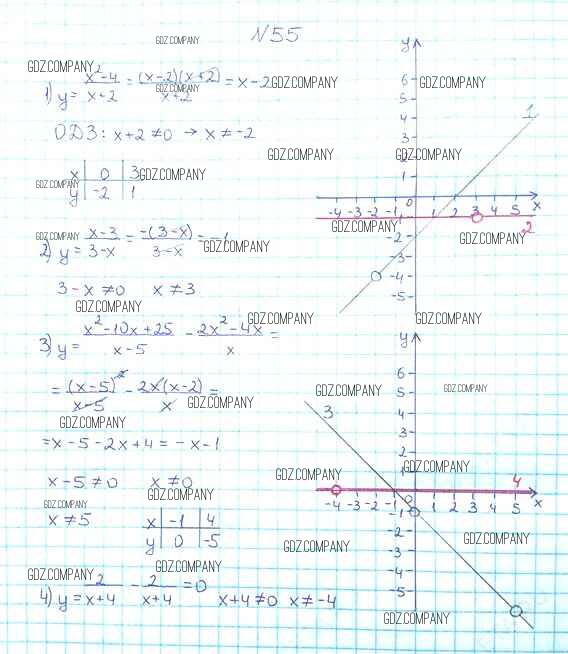 GDZ.COMPANY
N55
GDZ.COMPANY
1) y = (x²-4)/(x+2) = ((x-2)(x+2))/(x+2) = x-2
GDZ.COMPANY
GDZ.COMPANY
ОДЗ: x+2 ≠ 0 → x ≠ -2
x | 0 | 3
y | -2 | 1
GDZ.COMPANY
GDZ.COMPANY
GDZ.COMPANY
2) y = (x-3)/(3-x) = (-(3-x))/(3-x) = -1
GDZ.COMPANY
3-x ≠ 0 x ≠ 3
GDZ.COMPANY
3) y = (x²-10x+25)/(x-5) - (2x²-4x)/x =
= (x-5)²/(x-5) - (2x(x-2))/x =
GDZ.COMPANY
GDZ.COMPANY
= x-5-2x+4 = -x-1
x-5 ≠ 0 x ≠ 0
GDZ.COMPANY
GDZ.COMPANY
x ≠ 5
x | -1 | 4
y | 0 | -5
GDZ.COMPANY
GDZ.COMPANY
4) y = 2/(x+4) - 2/(x+4) = 0 x+4 ≠ 0 x ≠ -4
y
6
GDZ.COMPANY
GDZ.COMPANY
5
4
1
3
GDZ.COMPANY
GDZ.COMPANY
2
1
0
-4 -3 -2 -1 1 2 3 4 5 x
GDZ.COMPANY
2
GDZ.COMPANY
-2
-3
-4
-5
GDZ.COMPANY
GDZ.COMPANY
y
6
5
GDZ.COMPANY
GDZ.COMPANY
4
3
3
2
GDZ.COMPANY
GDZ.COMPANY
1
4
0
-4 -3 -2 -1 1 2 3 4 5 x
-1
-2
GDZ.COMPANY
GDZ.COMPANY
-3
-4
-5
GDZ.COMPANY